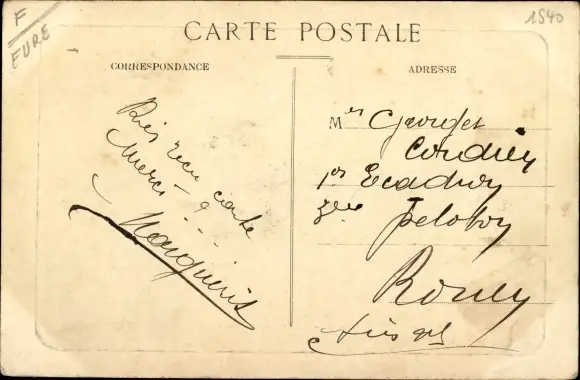 F
EURE
1540
CARTE POSTALE
CORRESPONDANCE
ADRESSE
reçu carte
Merci
Marguerite
Mr Georges
Cordier
1er Escadron
3ème Peloton
Rouen